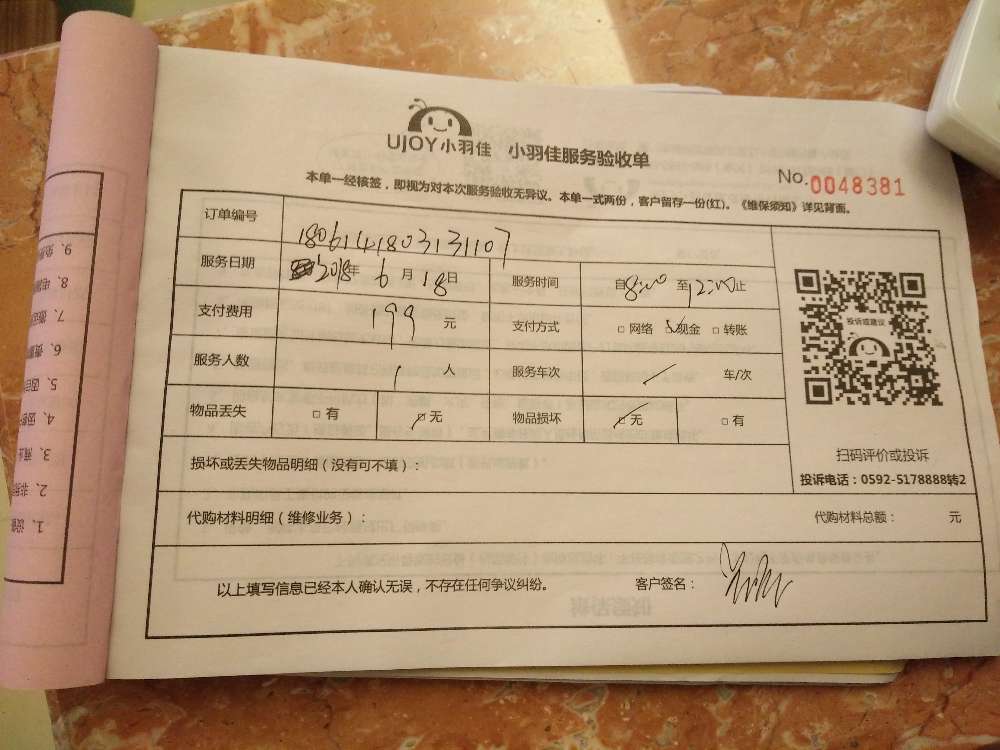 UJOY小羽佳 小羽佳服务验收单
No.0048381
本单一经核签，即视为对本次服务验收无异议。本单一式两份，客户留存一份(红)。《维保须知》详见背面。
订单编号 1806141803131107
服务日期 2018年 6月 18日 服务时间 自8:00 至12:00止
支付费用 199 元 支付方式 □ 网络 ☑现金 □ 转账
服务人数 1 人 服务车次 车/次
物品丢失 □ 有 ☑无 物品损坏 ☑无 □ 有
损坏或丢失物品明细（没有可不填）：
投诉或建议
扫码评价或投诉
投诉电话：0592-5178888转2
代购材料明细（维修业务）： 代购材料总额： 元
以上填写信息已经本人确认无误，不存在任何争议纠纷。 客户签名：